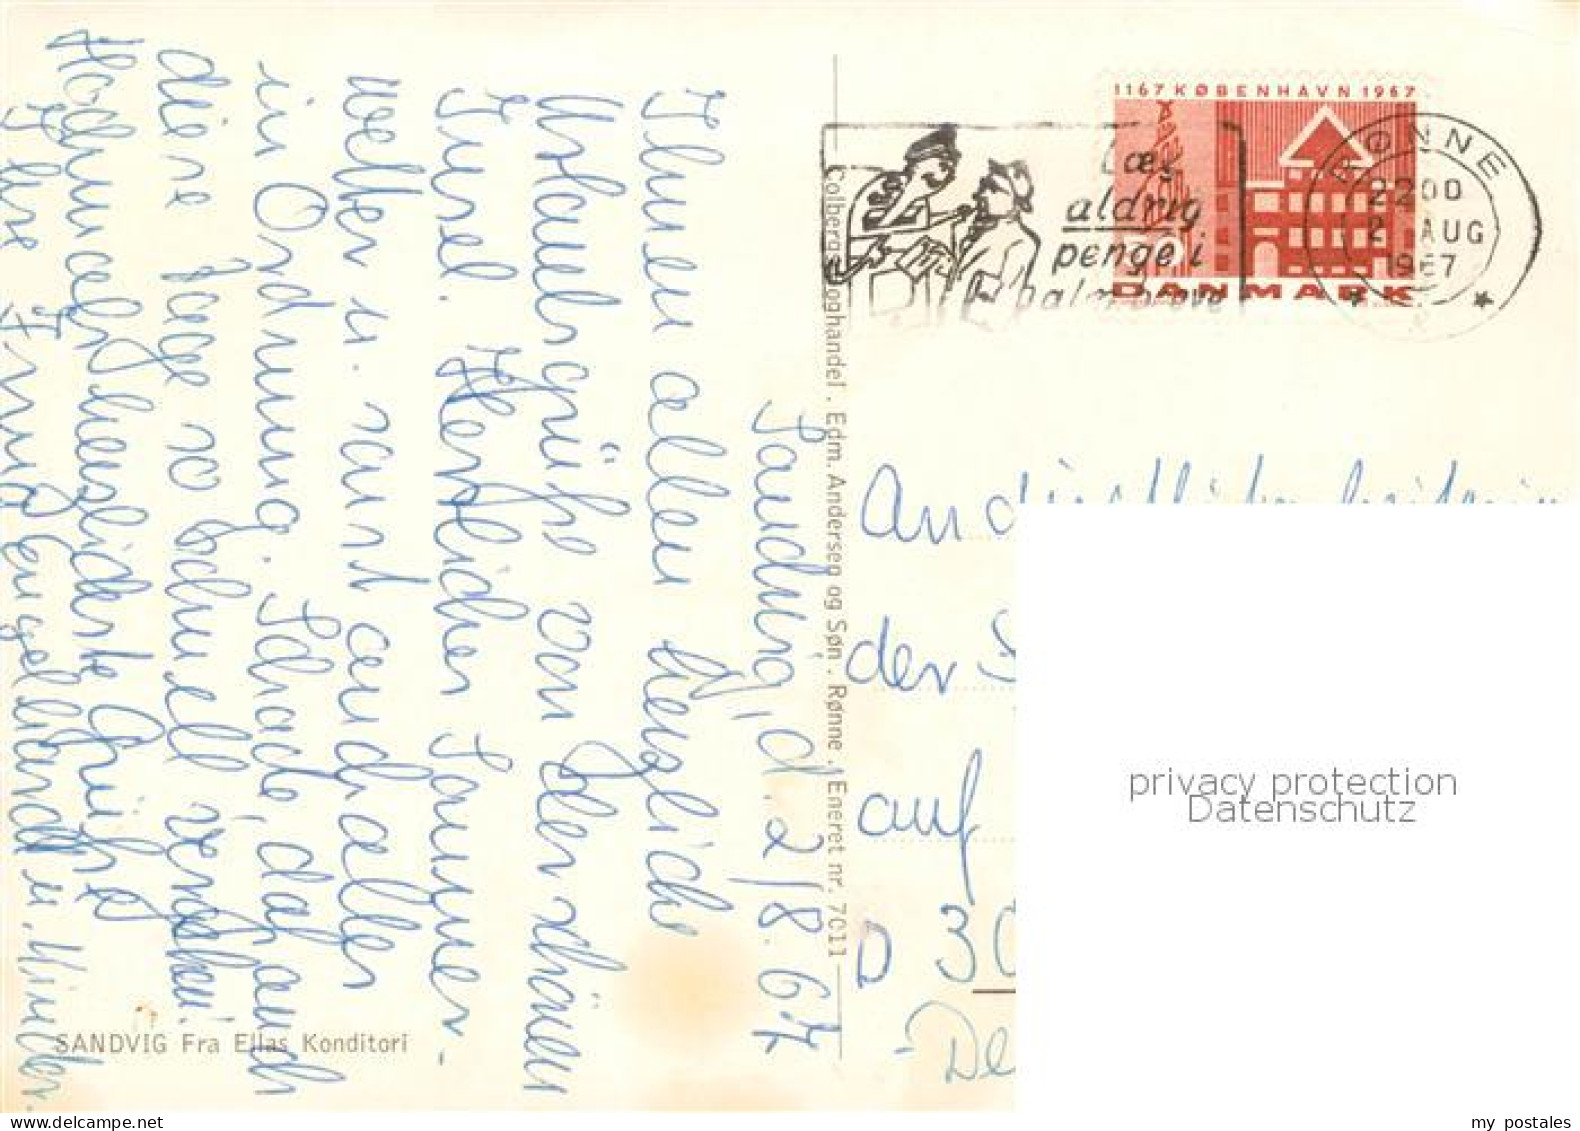 Sandvig, d. 2/8. 67
Ihnen allen herzliche
Urlaubsgrüße von der schönen
Insel. Herrliches Sommer-
wetter u. sonst auch alles
in Ordnung. Schade, daß auch
diese Tage so schnell vergehen!
Hochachtungsvolle Grüße
Ihre Irmg. Engelhardt u. Kinder.
SANDVIG Fra Ellas Konditori
Colbergs Boghandel . Edm. Andersen og Søn . Rønne . Eneret nr. 7011
1167 KØBENHAVN 1967
DANMARK
Læg
aldrig
penge i
RØNNE
2200
2 AUG
1967
An
der
auf
D 30
De
privacy protection
Datenschutz
my postales